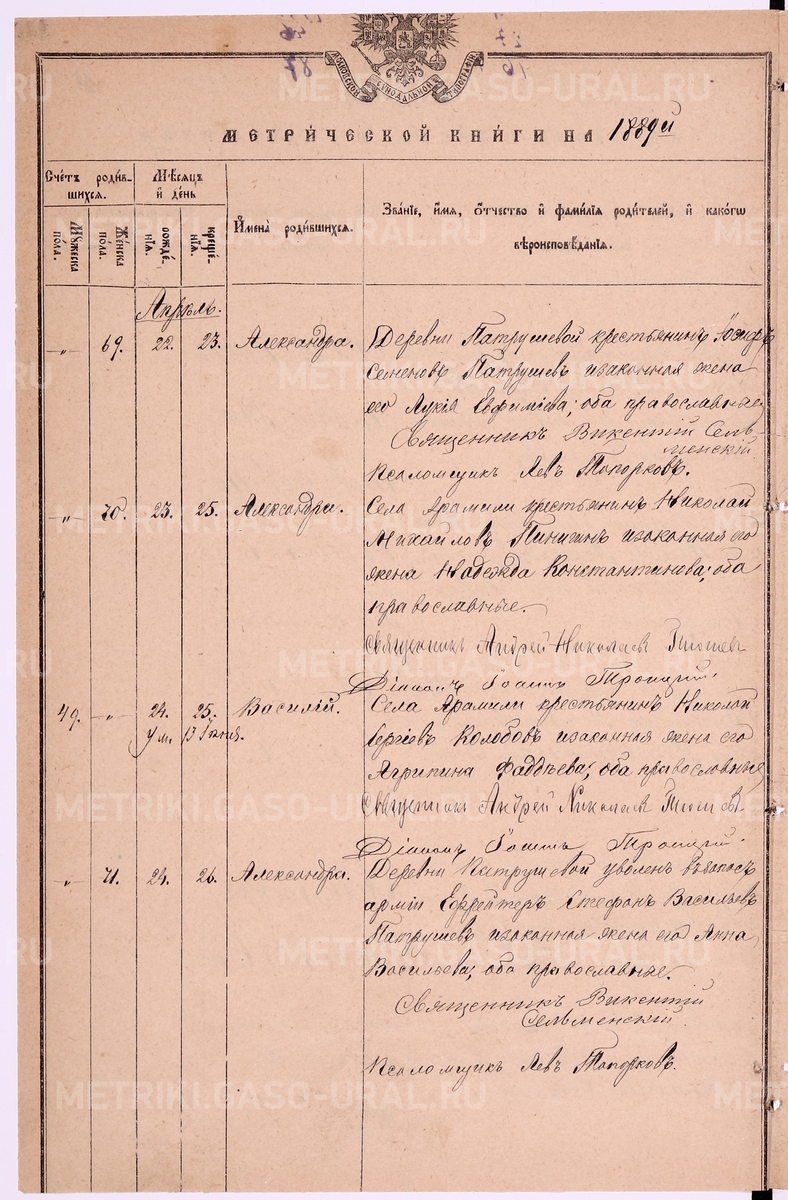 МОСКОВСКОЙ СѴНОДАЛЬНОЙ ТѴПОГРАФІИ
МЕТРИ́ЧЕСКОЙ КНИ́ГИ НА 1889й
Сче́тъ роди́в-
шихся.
Мꙋ́жеска по́ла.
Же́нска по́ла.
Мѣ́сяцъ и де́нь
рожде́нїя.
креще́нїя.
И҆мена̀ роди́вшихся.
Зва́нїе, и҆́мя, ѻ҆́тчество и҆ фами́лїя роди́телей, и҆ како́гѡ
вѣроисповѣ́данїя.
Апрѣль.
-„- 69. 22. 23. Александра. Деревни Патрушевой крестьянинъ
Семеновъ Патрушевъ и законная жена
его Лукія Евфиміева; оба православные
Священникъ Викентій Сель-
менскій.
Псаломщикъ Левъ Топорковъ.
-„- 70. 23. 25. Александра. Села Арамили крестьянинъ Николай
Михайловъ Пинигинъ и законная его
жена Надежда Константинова; оба
православные.
Священникъ Андрей Николаев
Діаконъ Іоаннъ Троицкій.
49. -„- 24. 25. Василій. Села Арамили крестьянинъ Николай
Ум. 13 Іюня. Сергіевъ Колобовъ и законная жена его
Агрипина Фаддѣева; оба православные
Священник Андрей Николаев
Діаконъ Іоаннъ Троицкій.
„ 71. 24. 26. Александра. Деревни Патрушевой уволен. въ запасъ
арміи Ефрейтеръ Стефанъ Васильевъ
Патрушевъ и законная жена его Анна
Васильева; оба православные.
Священникъ Викентій
Сельменскій.
Псаломщикъ Левъ Топорковъ.
METRIKI.GASO-URAL.RU